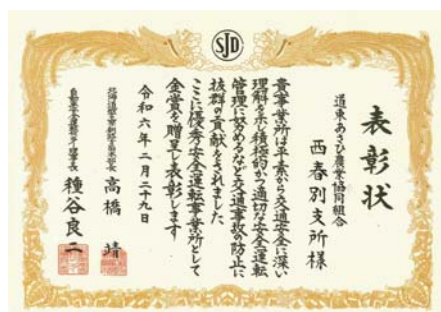 SJD
表彰状
道東あさひ農業協同組合
西春別支所様
貴事業所は平素から交通安全に深い
理解を示し積極的かつ適切な安全運転
管理に努めるなど交通事故の防止に
抜群の貢献をされました
ここに優秀安全運転事業所として
金賞を贈呈し表彰します
令和六年二月二十九日
高橋 靖
自動車安全運転センター理事長 種谷良二